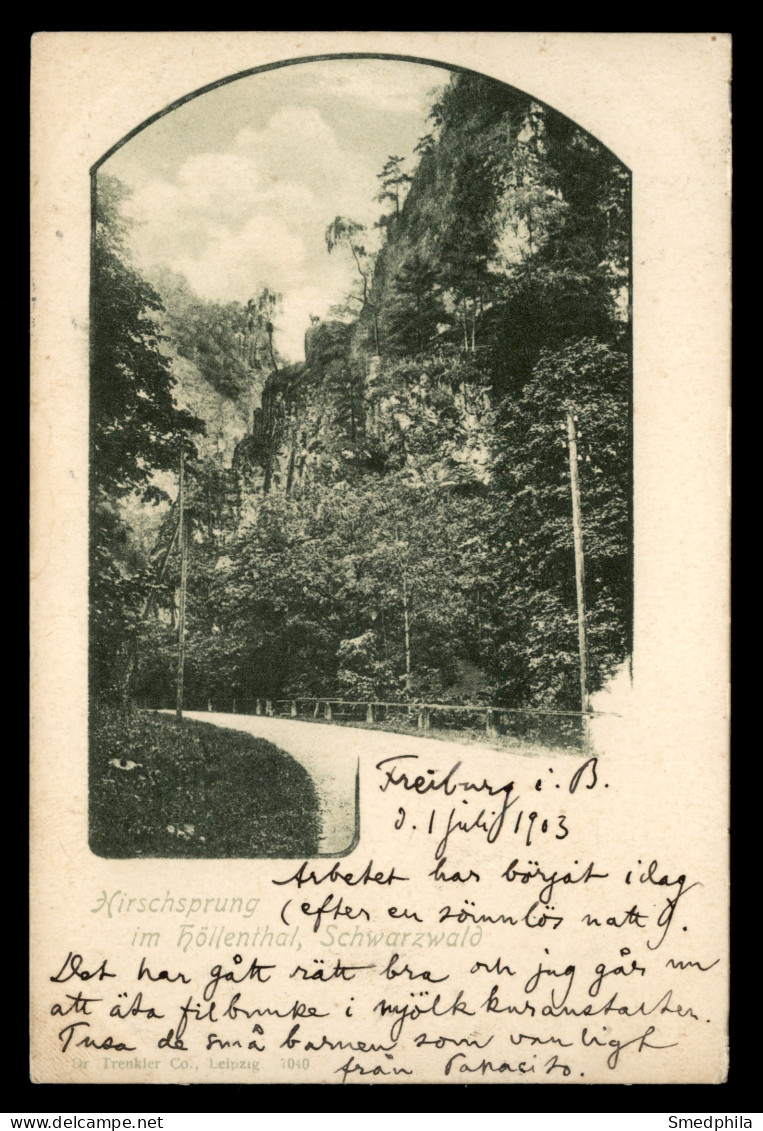 Freiburg i. B.
d. 1 juli 1903
Arbetet har börjat idag
(efter en sömnlös natt).
Hirschsprung
im Höllenthal, Schwarzwald
Det har gått rätt bra och jag går nu
att äta filbunke i mjölkkuranstalten.
Tusa de små barnen som vanligt
från Papacito.
Dr Trenkler Co., Leipzig 7040
SmedPhila | www.delcampe.net